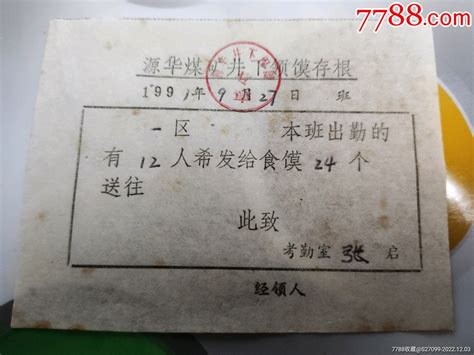 7788.com
源华煤矿井下领馍存根
1991年9月27日 班
一区 本班出勤的
有12人希发给食馍24个
送往
此致
考勤室 张 启
经领人
7788收藏@S27099-2022.12.03